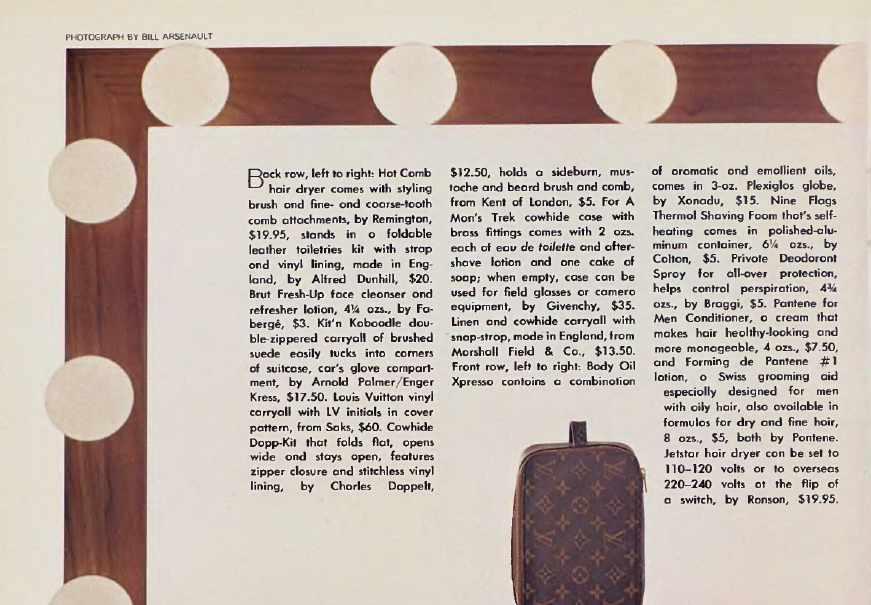 PHOTOGRAPH BY BILL ARSENAULT
Back row, left to right: Hot Comb
hair dryer comes with styling
brush and fine- and coarse-tooth
comb attachments, by Remington,
$19.95, stands in a foldable
leather toiletries kit with strap
and vinyl lining, made in Eng-
land, by Alfred Dunhill, $20.
Brut Fresh-Up face cleanser and
refresher lotion, 4¼ ozs., by Fa-
bergé, $3. Kit'n Kaboodle dou-
ble-zippered carryall of brushed
suede easily tucks into corners
of suitcase, car's glove compart-
ment, by Arnold Palmer/Enger
Kress, $17.50. Louis Vuitton vinyl
carryall with LV initials in cover
pattern, from Saks, $60. Cowhide
Dopp-Kit that folds flat, opens
wide and stays open, features
zipper closure and stitchless vinyl
lining, by Charles Doppelt,
$12.50, holds a sideburn, mus-
tache and beard brush and comb,
from Kent of London, $5. For A
Man's Trek cowhide case with
brass fittings comes with 2 ozs.
each of eau de toilette and after-
shave lotion and one cake of
soap; when empty, case can be
used for field glasses or camera
equipment, by Givenchy, $35.
Linen and cowhide carryall with
snap-strap, made in England, from
Marshall Field & Co., $13.50.
Front row, left to right: Body Oil
Xpresso contains a combination
of aromatic and emollient oils,
comes in 3-oz. Plexiglas globe,
by Xanadu, $15. Nine Flags
Thermal Shaving Foam that's self-
heating comes in polished-alu-
minum container, 6¼ ozs., by
Colton, $5. Private Deodorant
Spray for all-over protection,
helps control perspiration, 4¾
ozs., by Braggi, $5. Pantene for
Men Conditioner, a cream that
makes hair healthy-looking and
more manageable, 4 ozs., $7.50,
and Forming de Pantene #1
lotion, a Swiss grooming aid
especially designed for men
with oily hair, also available in
formulas for dry and fine hair,
8 ozs., $5, both by Pantene.
Jetstar hair dryer can be set to
110–120 volts or to overseas
220–240 volts at the flip of
a switch, by Ronson, $19.95.